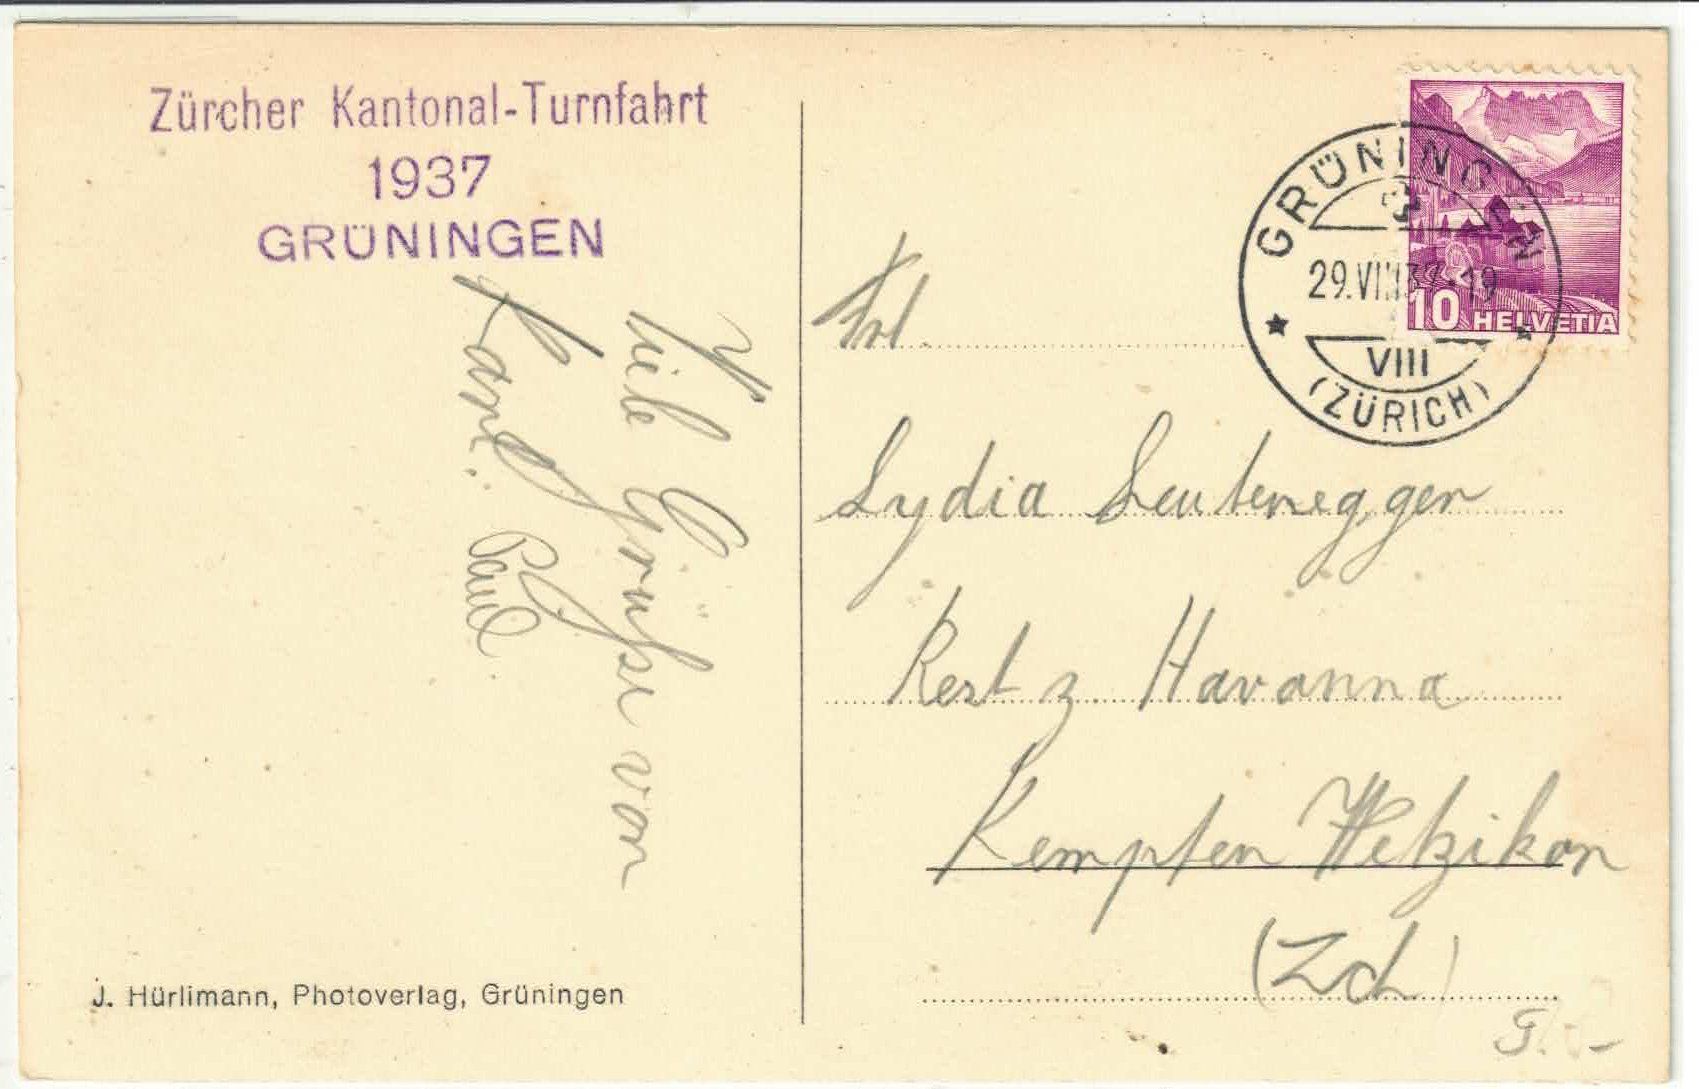 Zürcher Kantonal-Turnfahrt
1937
GRÜNINGEN
Viele Grüße von
Karl.
Paul.
J. Hürlimann, Photoverlag, Grüningen
10 HELVETIA
GRÜNINGEN
29.VIII.37-19
VIII
(ZÜRICH)
Frl.
Lydia Leutenegger
Rest z. Havanna
Kempten Wetzikon
(Zch)